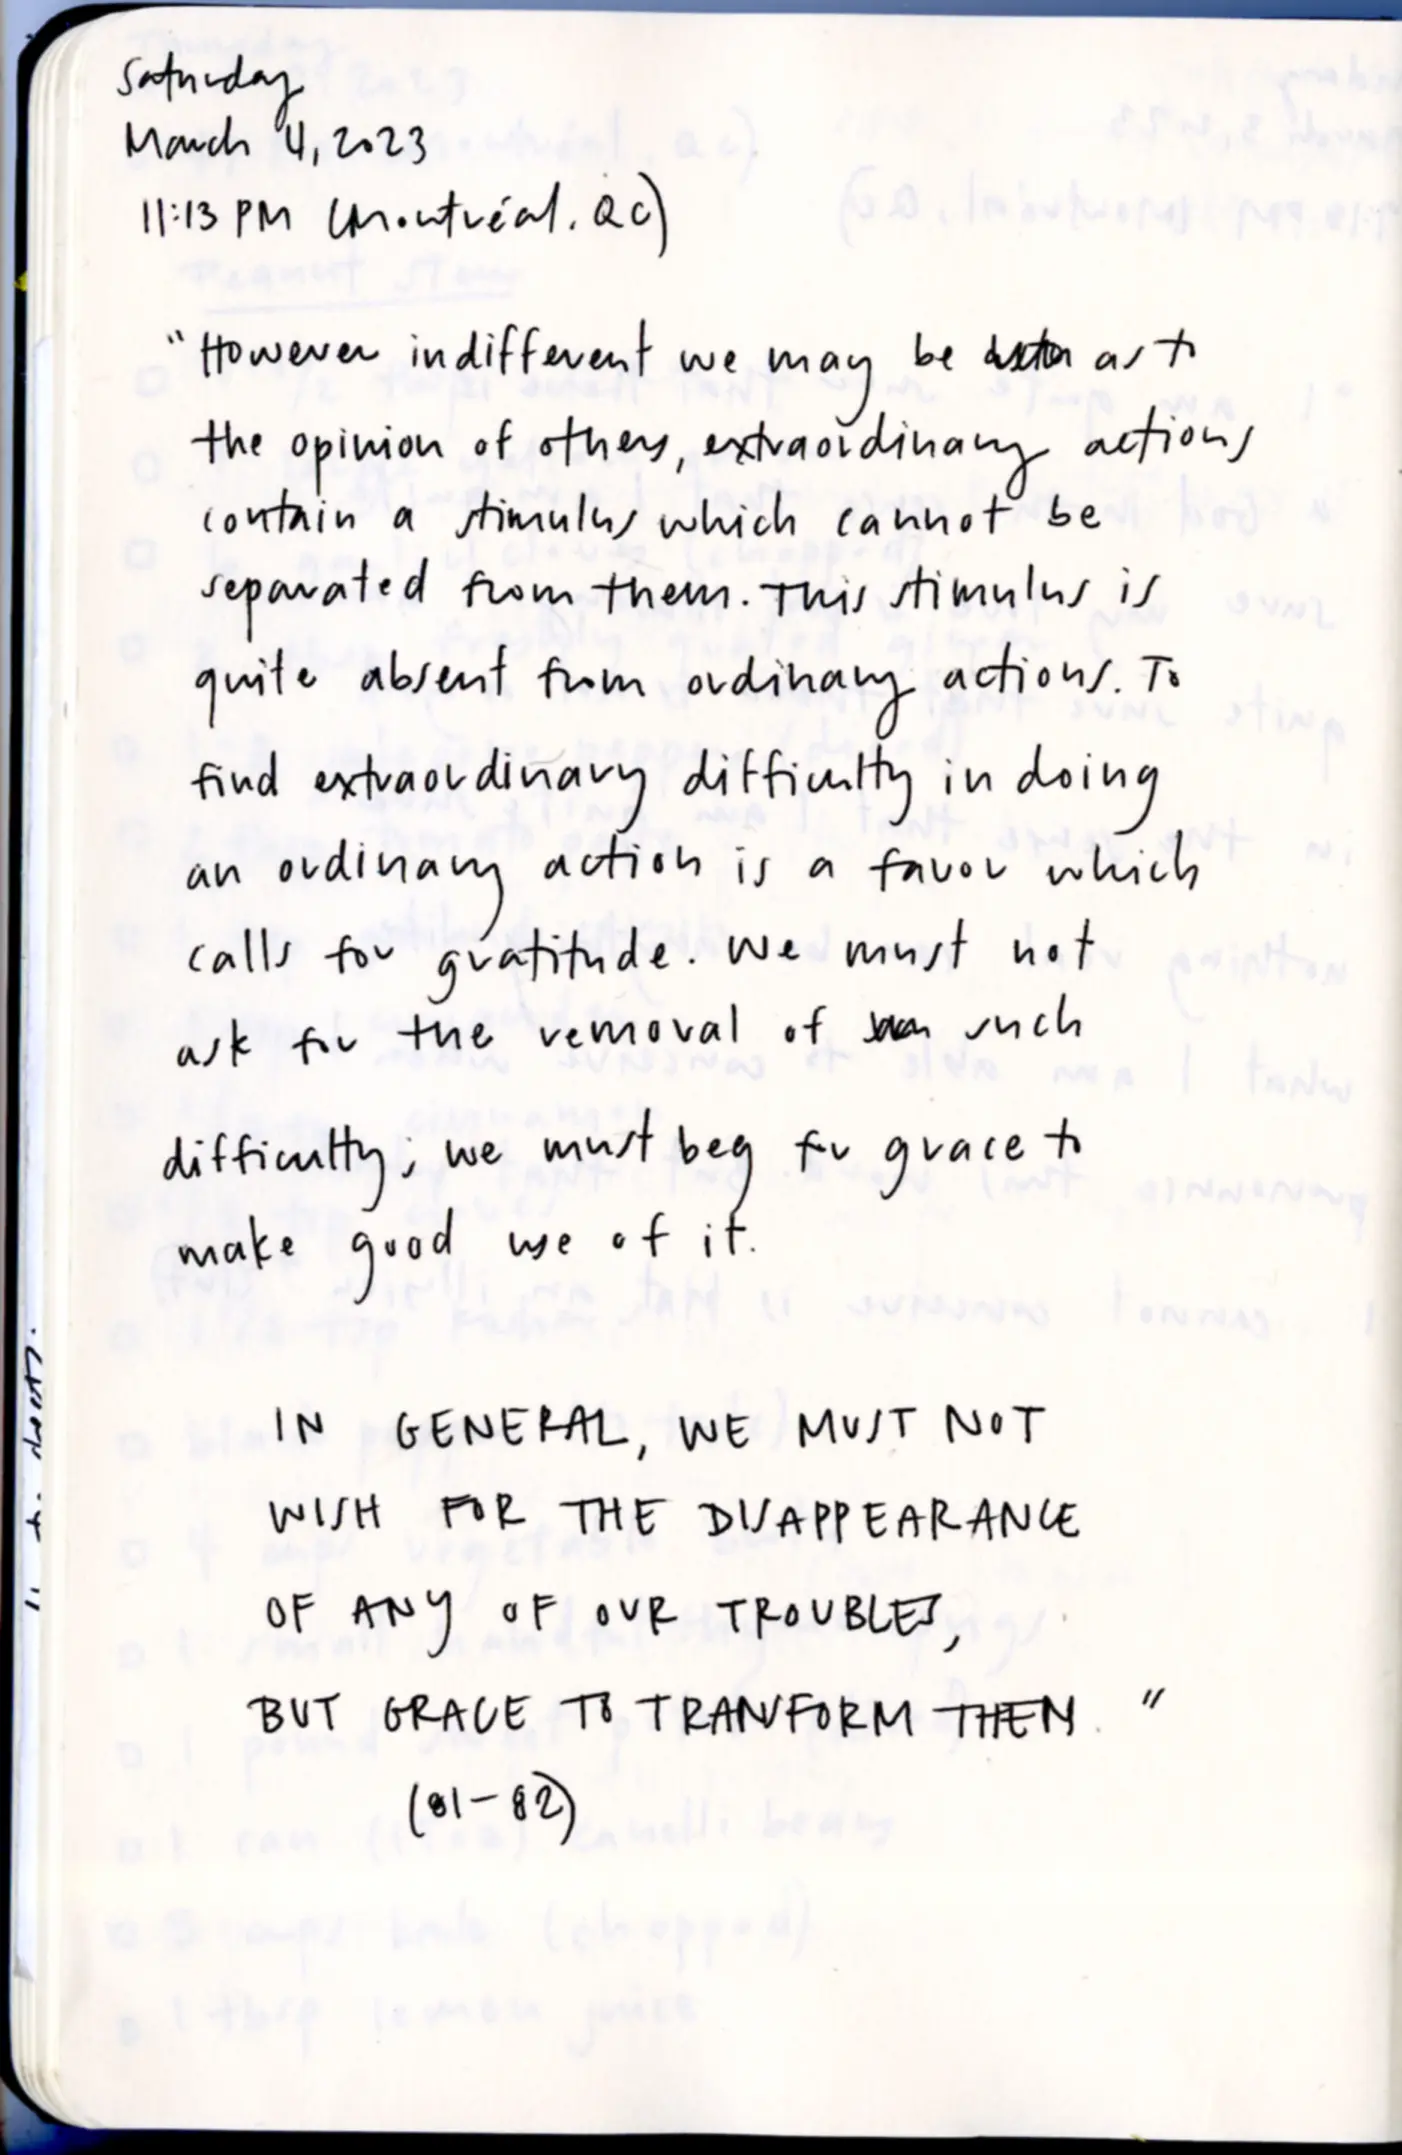 Saturday
March 4, 2023
11:13 PM (Montréal, QC)
"However indifferent we may be as to
the opinion of others, extraordinary actions
contain a stimulus which cannot be
separated from them. This stimulus is
quite absent from ordinary actions. To
find extraordinary difficulty in doing
an ordinary action is a favor which
calls for gratitude. We must not
ask for the removal of such
difficulty; we must beg for grace to
make good use of it.
IN GENERAL, WE MUST NOT
WISH FOR THE DISAPPEARANCE
OF ANY OF OUR TROUBLES,
BUT GRACE TO TRANSFORM THEM."
(81-82)